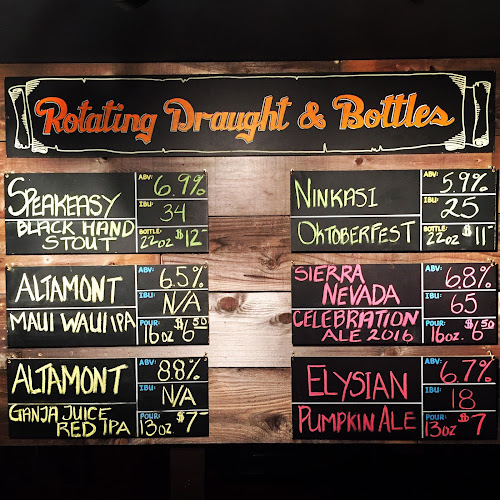 Rotating Draught & Bottles
SPEAKEASY
BLACK HAND
STOUT
ABV: 6.9%
IBU: 34
BOTTLE: 22oz $12-
ALTAMONT
MAUI WAUI IPA
ABV: 6.5%
IBU: N/A
POUR: 16oz $6.50
ALTAMONT
GANJA JUICE
RED IPA
ABV: 8.8%
IBU: N/A
POUR: 13oz. $7-
NINKASI
OKTOBERFEST
ABV: 5.9%
IBU: 25
BOTTLE: 22oz $11-
SIERRA
NEVADA
CELEBRATION
ALE 2016
ABV: 6.8%
IBU: 65
POUR: 16oz. $6.50
ELYSIAN
PUMPKIN ALE
ABV: 6.7%
IBU: 18
POUR: 13oz $7